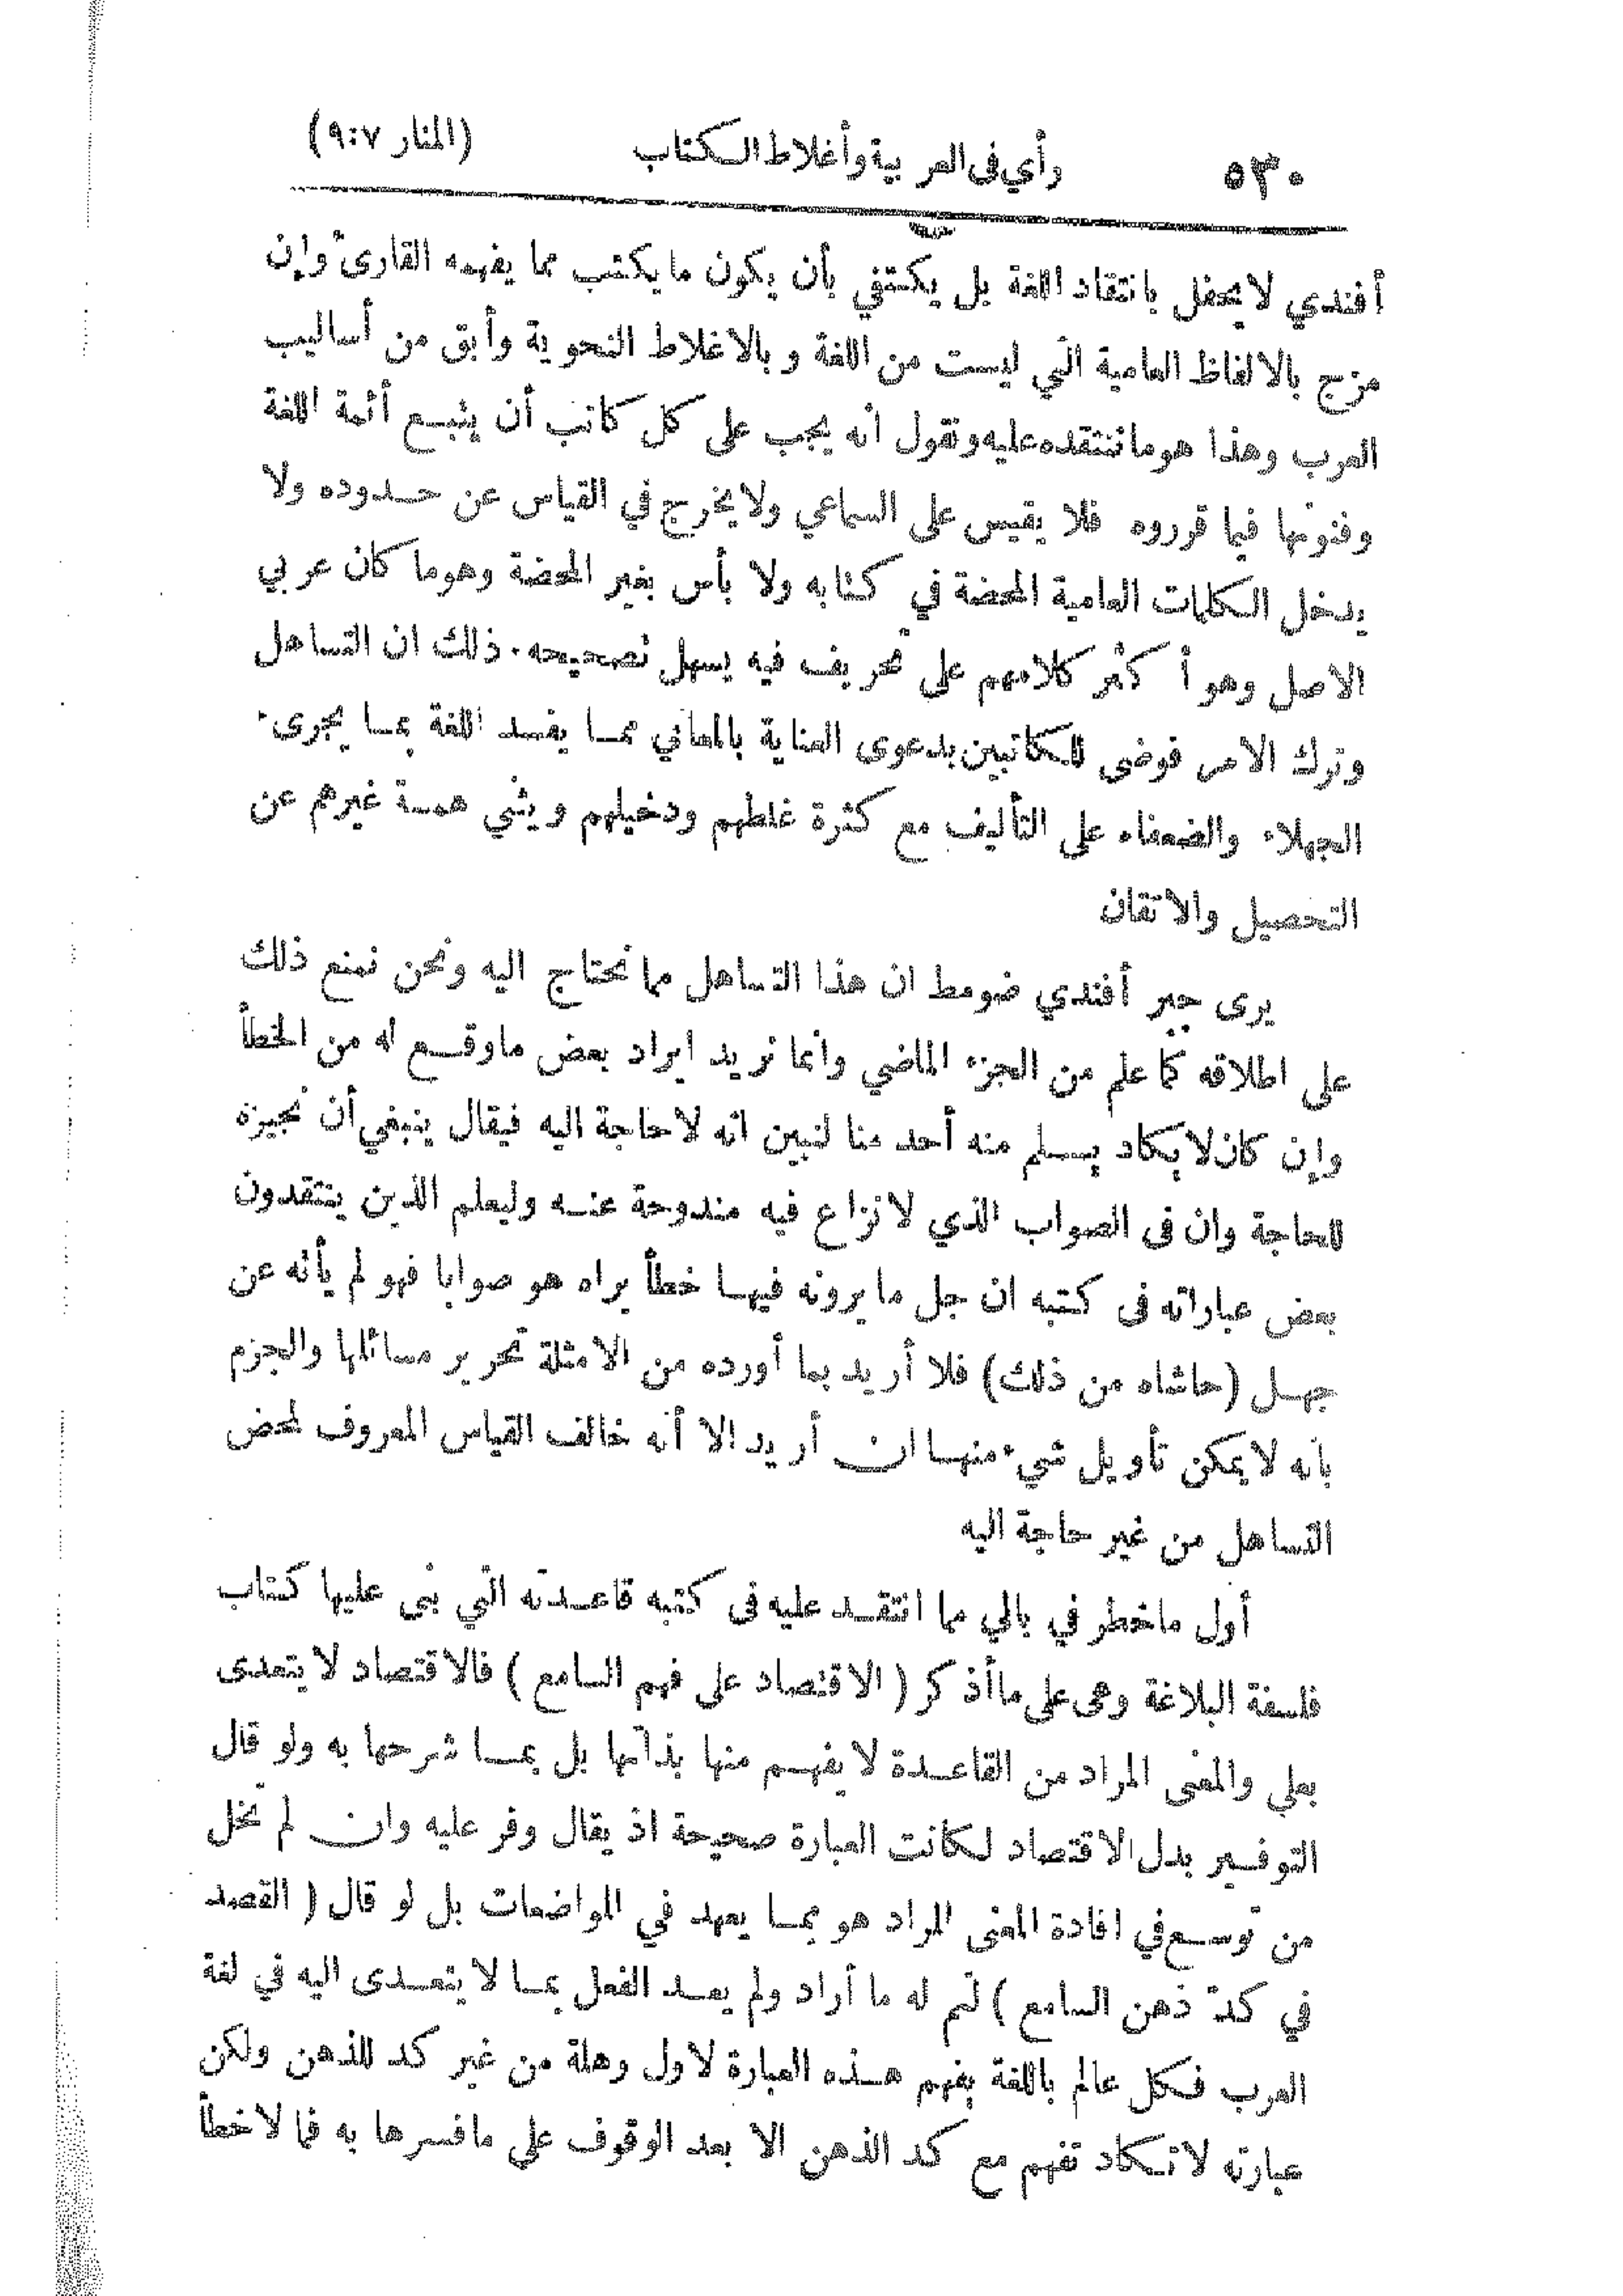 ٥٣٠ رأي في العربية وأغلاط الكتاب (المنار ٩:٧)
أفندي لا يحفل بانتقاد اللغة بل يكتفي بأن يكون ما يكتب مما يفهمه القارئ وإن
مزج بالالفاظ العامية التي ليست من اللغة وبالاغلاط النحوية وأبق من أساليب
العرب وهذا هو ما ننتقده عليه ونقول أنه يجب على كل كاتب أن يتبع أئمة اللغة
وفنونها فيما قرروه فلا يقيس على السماعي ولا يخرج في القياس عن حدوده ولا
يدخل الكلمات العامية المحضة في كتابه ولا بأس بغير المحضة وهو ما كان عربي
الاصل وهو أكثر كلامهم على تحريف فيه يسهل تصحيحه. ذلك ان التساهل
وترك الامر فوضى للكاتبين بدعوى العناية بالمعاني مما يفسد اللغة بما يجرئ
الجهلاء والضعفاء على التأليف مع كثرة غلطهم ودخيلهم ويثني همة غيرهم عن
التحصيل والاتقان
يرى جبر أفندي ضومط ان هذا التساهل مما نحتاج اليه ونحن نمنع ذلك
على اطلاقه كما علم من الجزء الماضي وانما نريد ايراد بعض ما وقع له من الخطأ
وإن كان لا يكاد يسلم منه أحد منا لنبين انه لا حاجة اليه فيقال ينبغي أن نجيزه
للحاجة وان في الصواب الذي لا نزاع فيه مندوحة عنه وليعلم الذين ينتقدون
بعض عباراته في كتبه ان جل ما يرونه فيها خطأ يراه هو صوابا فهو لم يأته عن
جهل (حاشاه من ذلك) فلا أريد بما أورده من الامثلة تحرير مسائلها والجزم
بانه لا يمكن تأويل شيء منها ان أريد الا أنه خالف القياس المعروف لمحض
التساهل من غير حاجة اليه
أول ما خطر في بالي مما انتقد عليه في كتبه قاعدته التي بنى عليها كتاب
فلسفة البلاغة وهى على ما أذكر ( الاقتصاد على فهم السامع ) فالاقتصاد لا يتعدى
بعلي والمعنى المراد من القاعدة لا يفهم منها بذاتها بل بما شرحها به ولو قال
التوفير بدل الاقتصاد لكانت العبارة صحيحة اذ يقال وفر عليه وان لم تخل
من توسع في افادة المعنى المراد هو مما يعهد في المواضعات بل لو قال ( القصد
في كدّ ذهن السامع ) لتم له ما أراد ولم يعد الفعل بما لا يتعدى اليه في لغة
العرب فكل عالم باللغة يفهم هذه العبارة لاول وهلة من غير كد للذهن ولكن
عبارته لا تكاد تفهم مع كد الذهن الا بعد الوقوف على ما فسرها به فما لا خطأ